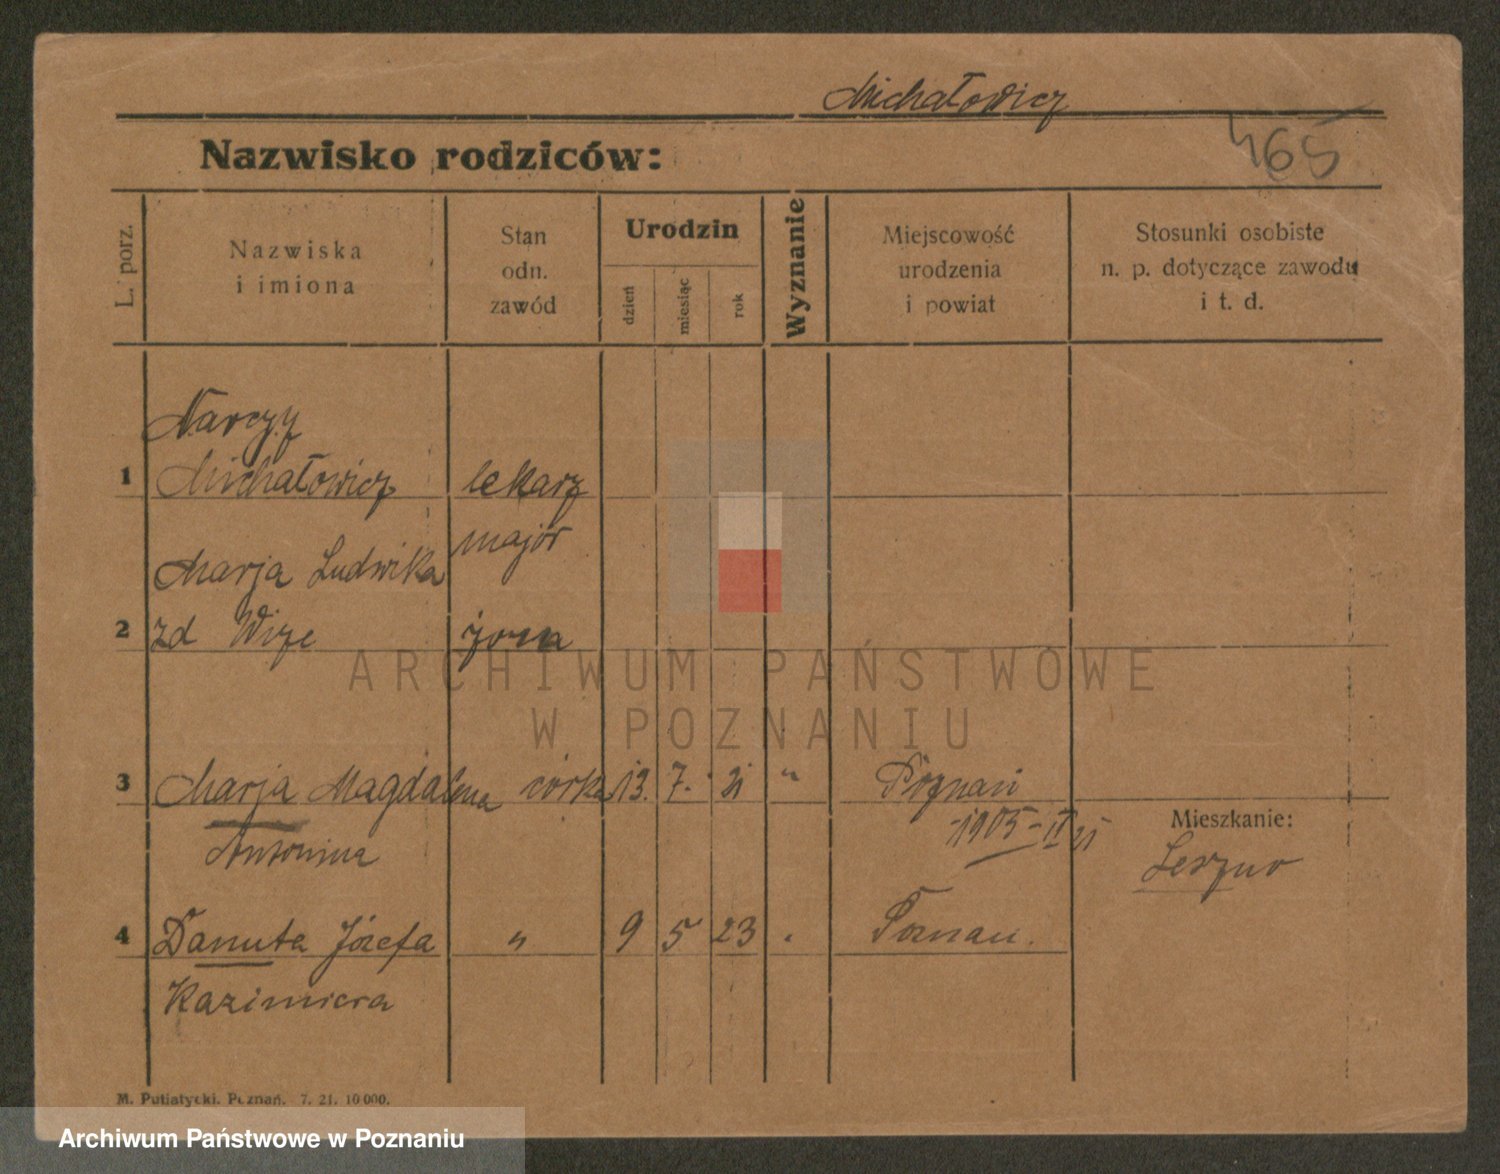 Michałowicz
465
Nazwisko rodziców:
L. porz.
Nazwiska
i imiona
Stan
odn.
zawód
Urodzin
dzień
miesiąc
rok
Wyznanie
Miejscowość
urodzenia
i powiat
Stosunki osobiste
n. p. dotyczące zawodu
i t. d.
Narcyz
1 Michałowicz lekarz
major
Marja Ludwika
2 zd Wize żona
ARCHIWUM PAŃSTWOWE
W POZNANIU
3 Marja Magdalena córka 13. 7. 21 " Poznań
1905 - II 21
Mieszkanie:
Antonina
Leszno
4 Danuta Józefa " 9 5 23 " Poznań.
Kazimiera
M. Putiatycki. Poznań. 7. 21. 10 000.
Archiwum Państwowe w Poznaniu